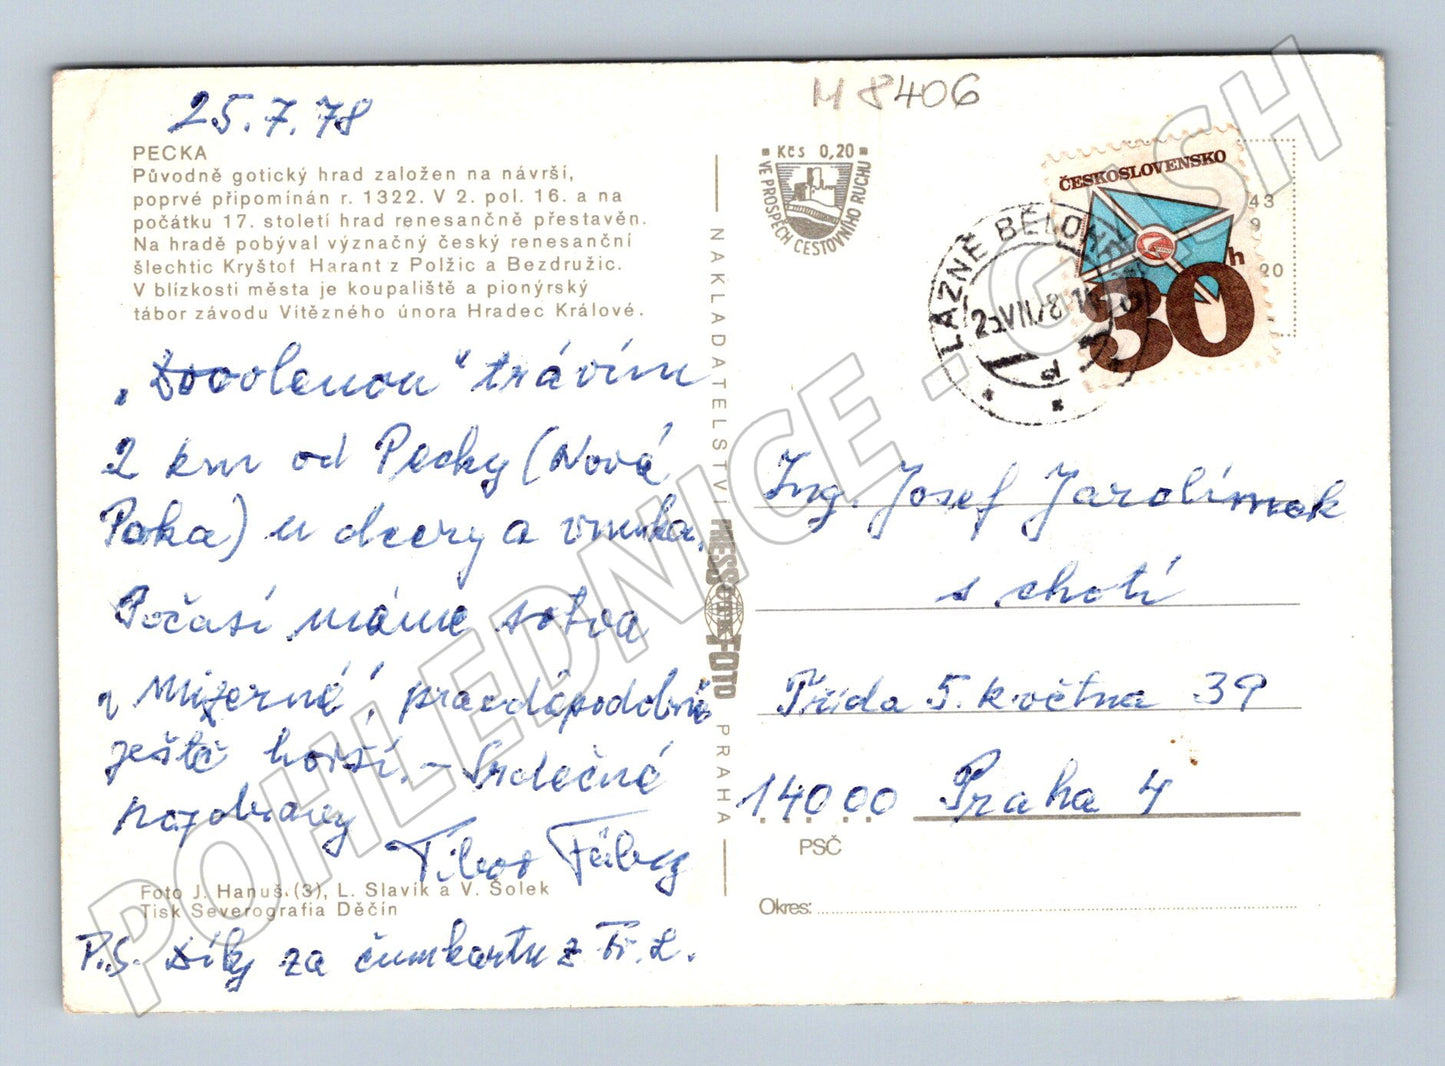 25.7.78
M 8406
PECKA
Původně gotický hrad založen na návrší,
poprvé připomínán r. 1322. V 2. pol. 16. a na
počátku 17. století hrad renesančně přestavěn.
Na hradě pobýval význačný český renesanční
šlechtic Kryštof Harant z Polžic a Bezdružic.
V blízkosti města je koupaliště a pionýrský
tábor závodu Vítězného února Hradec Králové.
„Dovolenou“ trávím
2 km od Pecky (Nová
Paka) u dcery a vnuka.
Počasí máme sotva
„mizerné“, pravděpodobně
ještě horší. – Srdečné
pozdravy
Tibor
Foto J. Hanuš (3), L. Slavík a V. Šolek
Tisk Severografia Děčín
P.S. Díky za čumkartu z Fr. L.
NAKLADATELSTVÍ PRESSFOTO PRAHA
Kčs 0,20
VE PROSPĚCH CESTOVNÍHO RUCHU
ČESKOSLOVENSKO
30h
LÁZNĚ BĚLOHRAD
43
9
20
Ing. Josef Jarolímek
s chotí
Třída 5. května 39
14000 Praha 4
PSČ
Okres:
POHLEDNICE - GISH